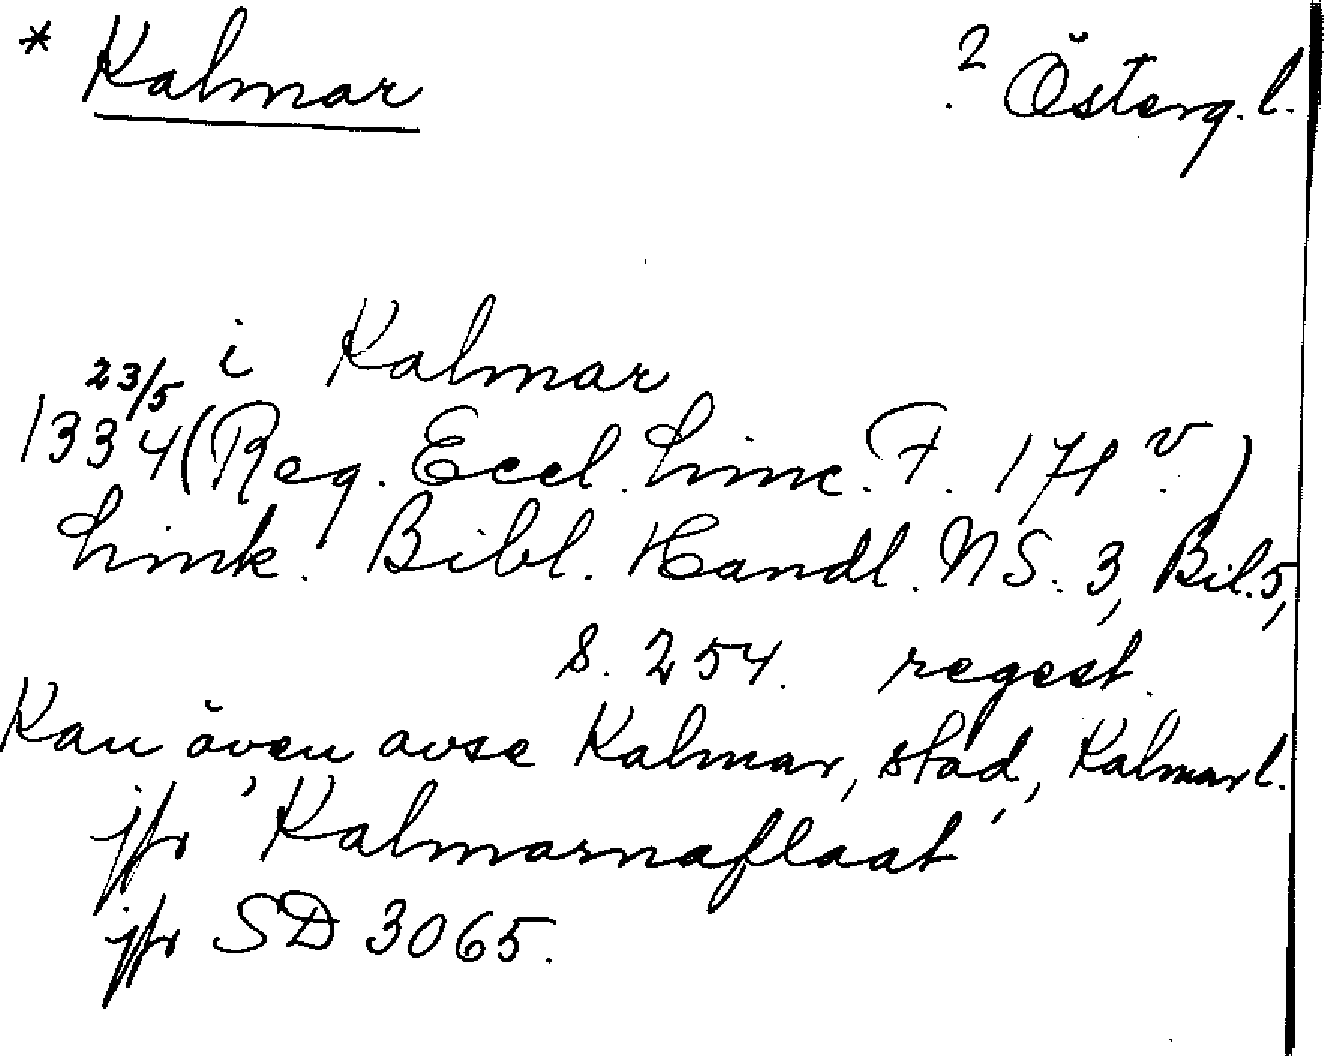 * Kalmar ? Österg. l.
i Kalmar
23/5
1334 (Reg. Eccl. Linc. F. 171 v.)
Link. Bibl. Handl. NS. 3, Bil. 5,
s. 254. regest.
Kan även avse Kalmar, stad, Kalmar l.
jfr 'Kalmarnaflaat'
jfr SD 3065.